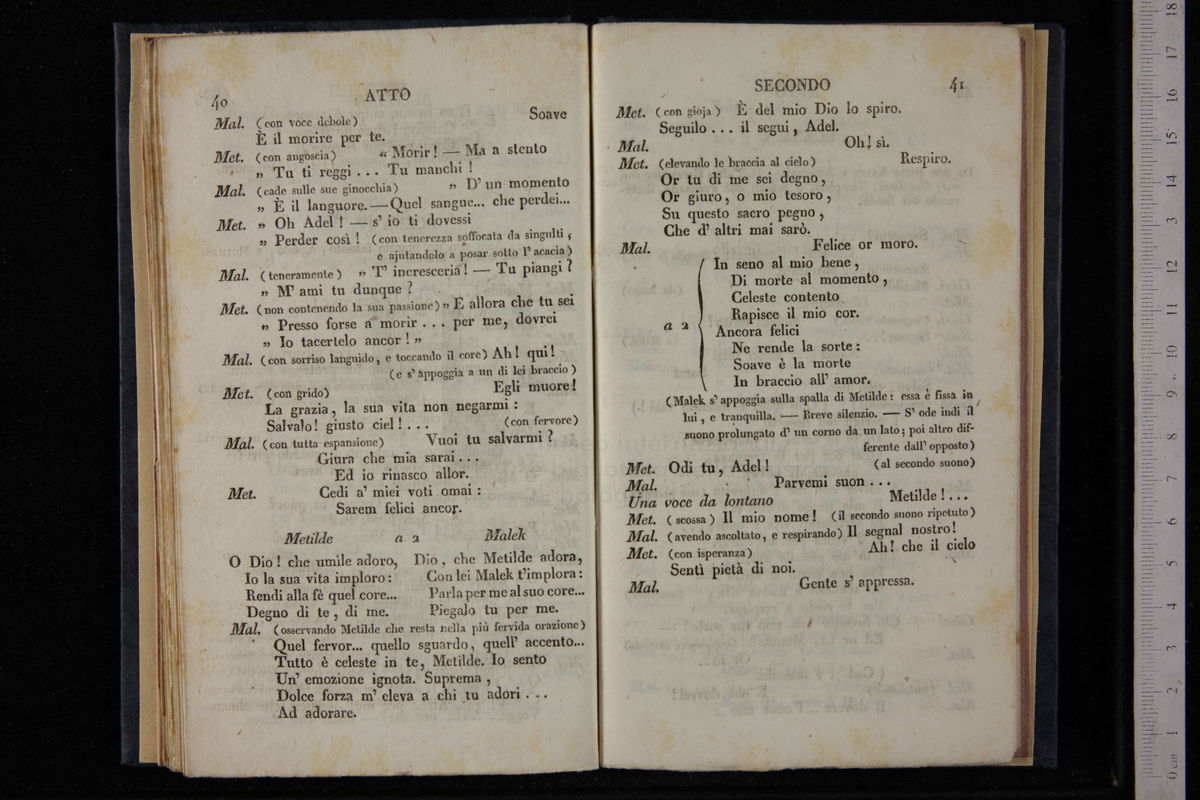 40 ATTO
Mal. (con voce debole) Soave
È il morire per te.
Met. (con angoscia) „ Morir! — Ma a stento
„ Tu ti reggi . . . Tu manchi !
Mal. (cade sulle sue ginocchia) „ D' un momento
„ È il languore. — Quel sangue... che perdei...
Met. „ Oh Adel ! — s' io ti dovessi
„ Perder così ! (con tenerezza soffocata da singulti,
e ajutandolo a posar sotto l' acacia)
Mal. (teneramente) „ T' incresceria! — Tu piangi ?
„ M' ami tu dunque ?
Met. (non contenendo la sua passione) „ E allora che tu sei
„ Presso forse a morir . . . per me, dovrei
„ Io tacertelo ancor ! „
Mal. (con sorriso languido, e toccando il core) Ah! qui!
(e s' appoggia a un di lei braccio)
Met. (con grido) Egli muore!
La grazia, la sua vita non negarmi :
Salvalo! giusto ciel! . . . (con fervore)
Mal. (con tutta espansione) Vuoi tu salvarmi ?
Giura che mia sarai . . .
Ed io rinasco allor.
Met. Cedi a' miei voti omai :
Sarem felici ancor.
Metilde a 2 Malek
O Dio! che umìle adoro, Dio, che Metilde adora,
Io la sua vita imploro: Con lei Malek t'implora:
Rendi alla fè quel core... Parla per me al suo core...
Degno di te, di me. Piegalo tu per me.
Mal. (osservando Metilde che resta nella più fervida orazione)
Quel fervor... quello sguardo, quell' accento...
Tutto è celeste in te, Metilde. Io sento
Un' emozione ignota. Suprema,
Dolce forza m' eleva a chi tu adori . . .
Ad adorare.
SECONDO 41
Met. (con gioja) È del mio Dio lo spiro.
Seguilo . . . il segui, Adel.
Mal. Oh! sì.
Met. (elevando le braccia al cielo) Respiro.
Or tu di me sei degno,
Or giuro, o mio tesoro,
Su questo sacro pegno,
Che d' altri mai sarò.
Mal. Felice or moro.
In seno al mio bene,
Di morte al momento,
Celeste contento
Rapisce il mio cor.
a 2
Ancora felici
Ne rende la sorte:
Soave è la morte
In braccio all' amor.
(Malek s' appoggia sulla spalla di Metilde: essa è fissa in
lui, e tranquilla. — Breve silenzio. — S' ode indi il
suono prolungato d' un corno da un lato; poi altro dif-
ferente dall' opposto)
Met. Odi tu, Adel! (al secondo suono)
Mal. Parvemi suon . . .
Una voce da lontano Metilde! . . .
Met. (scossa) Il mio nome! (il secondo suono ripetuto)
Mal. (avendo ascoltato, e respirando) Il segnal nostro!
Met. (con isperanza) Ah! che il cielo
Sentì pietà di noi.
Mal. Gente s' appressa.